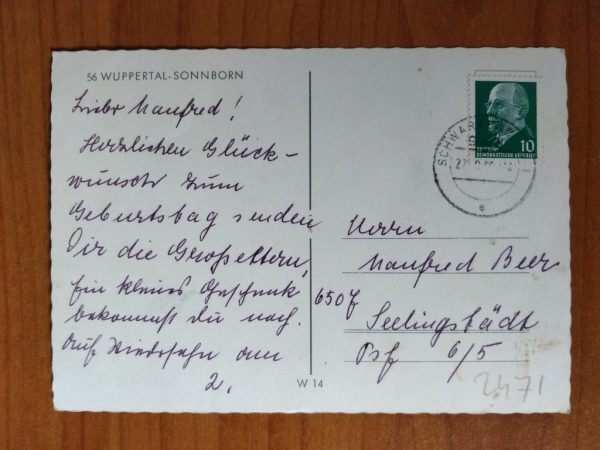 56 WUPPERTAL-SONNBORN
Lieber Manfred!
Herzlichen Glück-
wunsch zum
Geburtstag senden
Dir die Großeltern,
Ein kleines Geschenk
bekommst Du noch.
Auf Wiedersehn am
2.
10
DEUTSCHE
DEMOKRATISCHE REPUBLIK
SCHWA
e
Herrn
Manfred Beer
6507
Seelingstädt
Psf 6/5
2471
W 14